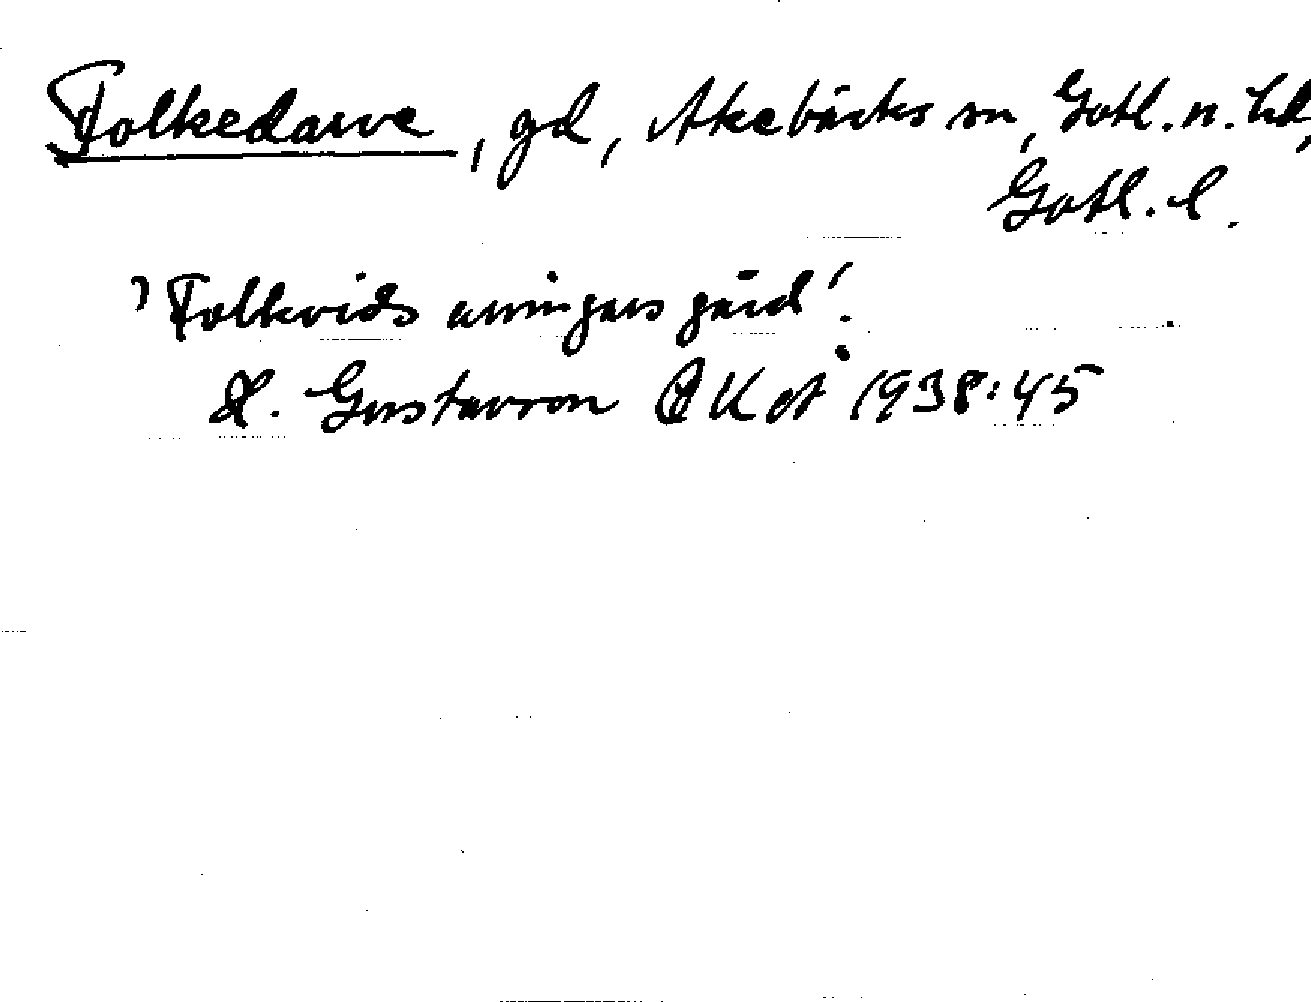 Folkedarve, gd, Akebäcks sn, Gotl. n. hd,
Gotl. l.
'Folkvids arvingars gård'.
H. Gustavson GKoÅ 1938:45